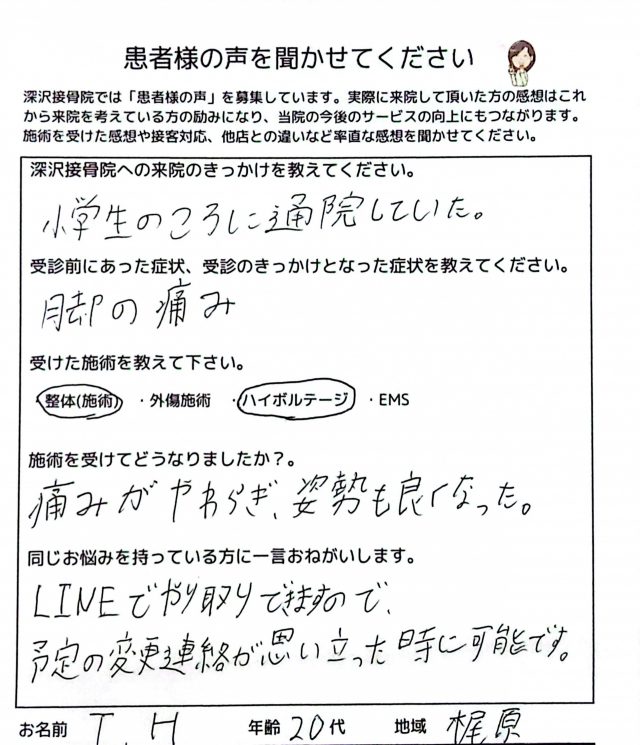 患者様の声を聞かせてください
深沢接骨院では「患者様の声」を募集しています。実際に来院して頂いた方の感想はこれ
から来院を考えている方の励みになり、当院の今後のサービスの向上にもつながります。
施術を受けた感想や接客対応、他店との違いなど率直な感想を聞かせてください。
深沢接骨院への来院のきっかけを教えてください。
小学生のころに通院していた。
受診前にあった症状、受診のきっかけとなった症状を教えてください。
脚の痛み
受けた施術を教えて下さい。
・整体(施術) ・外傷施術 ・ハイボルテージ ・EMS
施術を受けてどうなりましたか？。
痛みがやわらぎ、姿勢も良くなった。
同じお悩みを持っている方に一言おねがいします。
LINEでやり取りできますので、
予定の変更連絡が思い立った時に可能です。
お名前 T.H 年齢 20代 地域 梶原